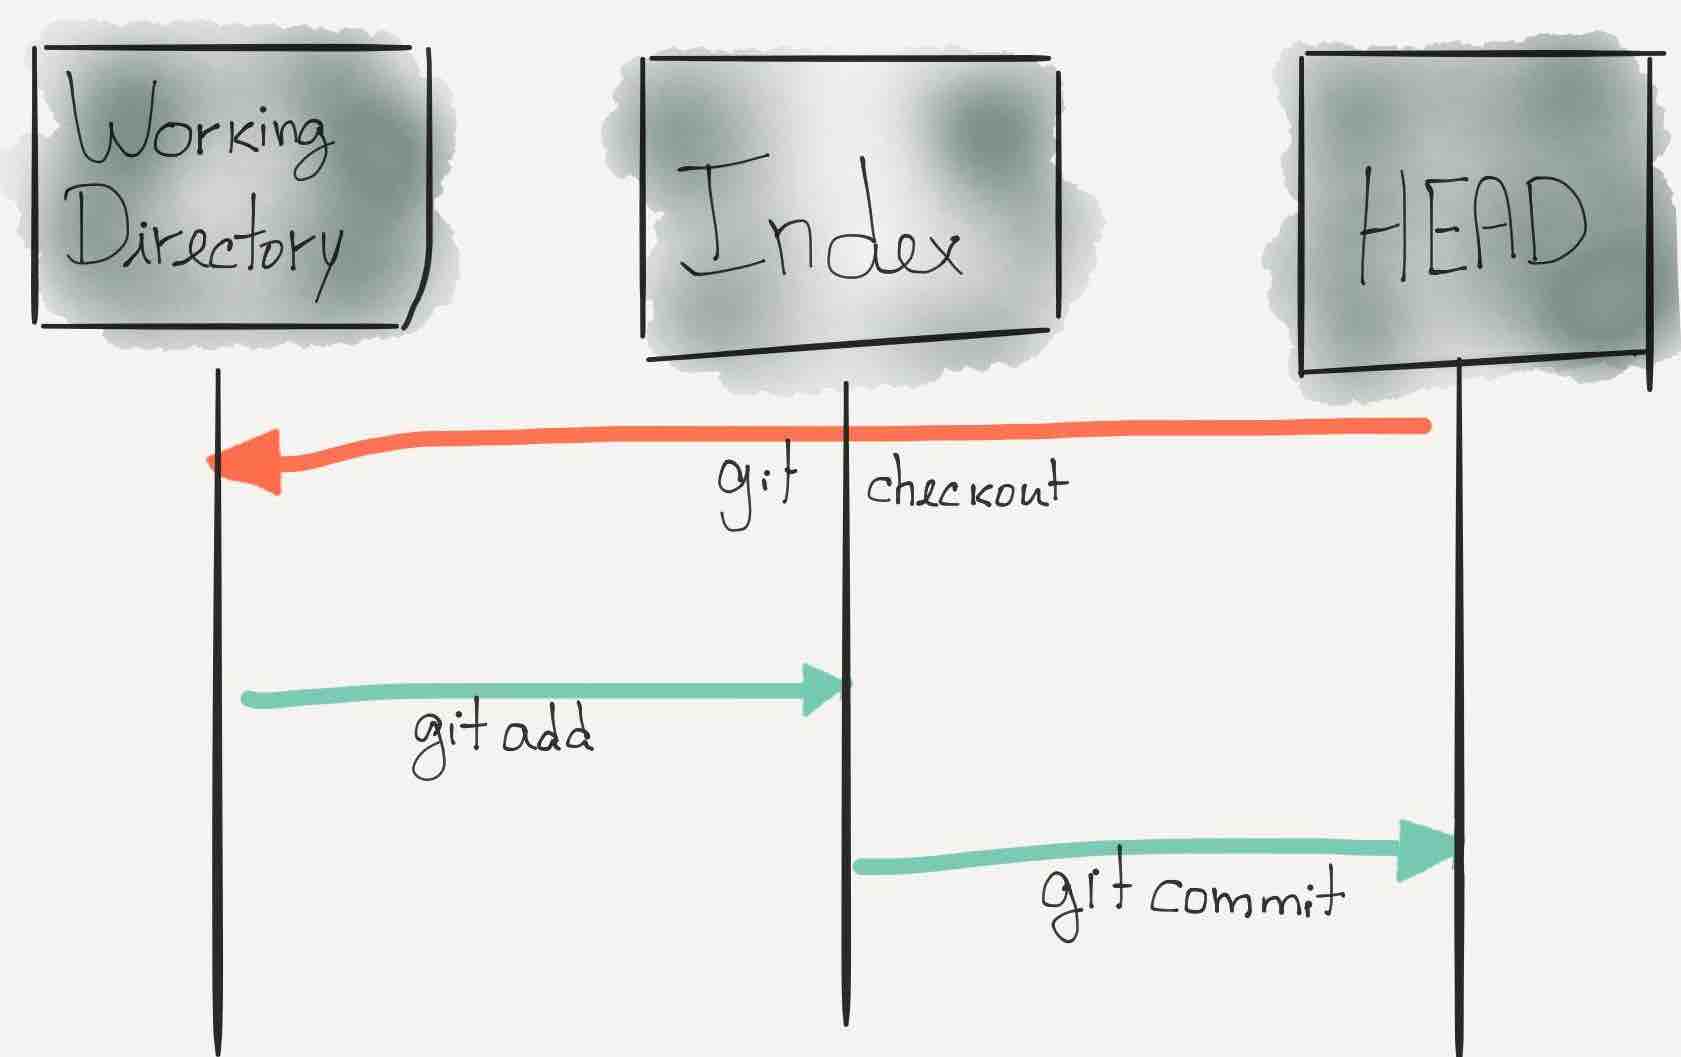 Working
Directory
Index
HEAD
git checkout
git add
git commit